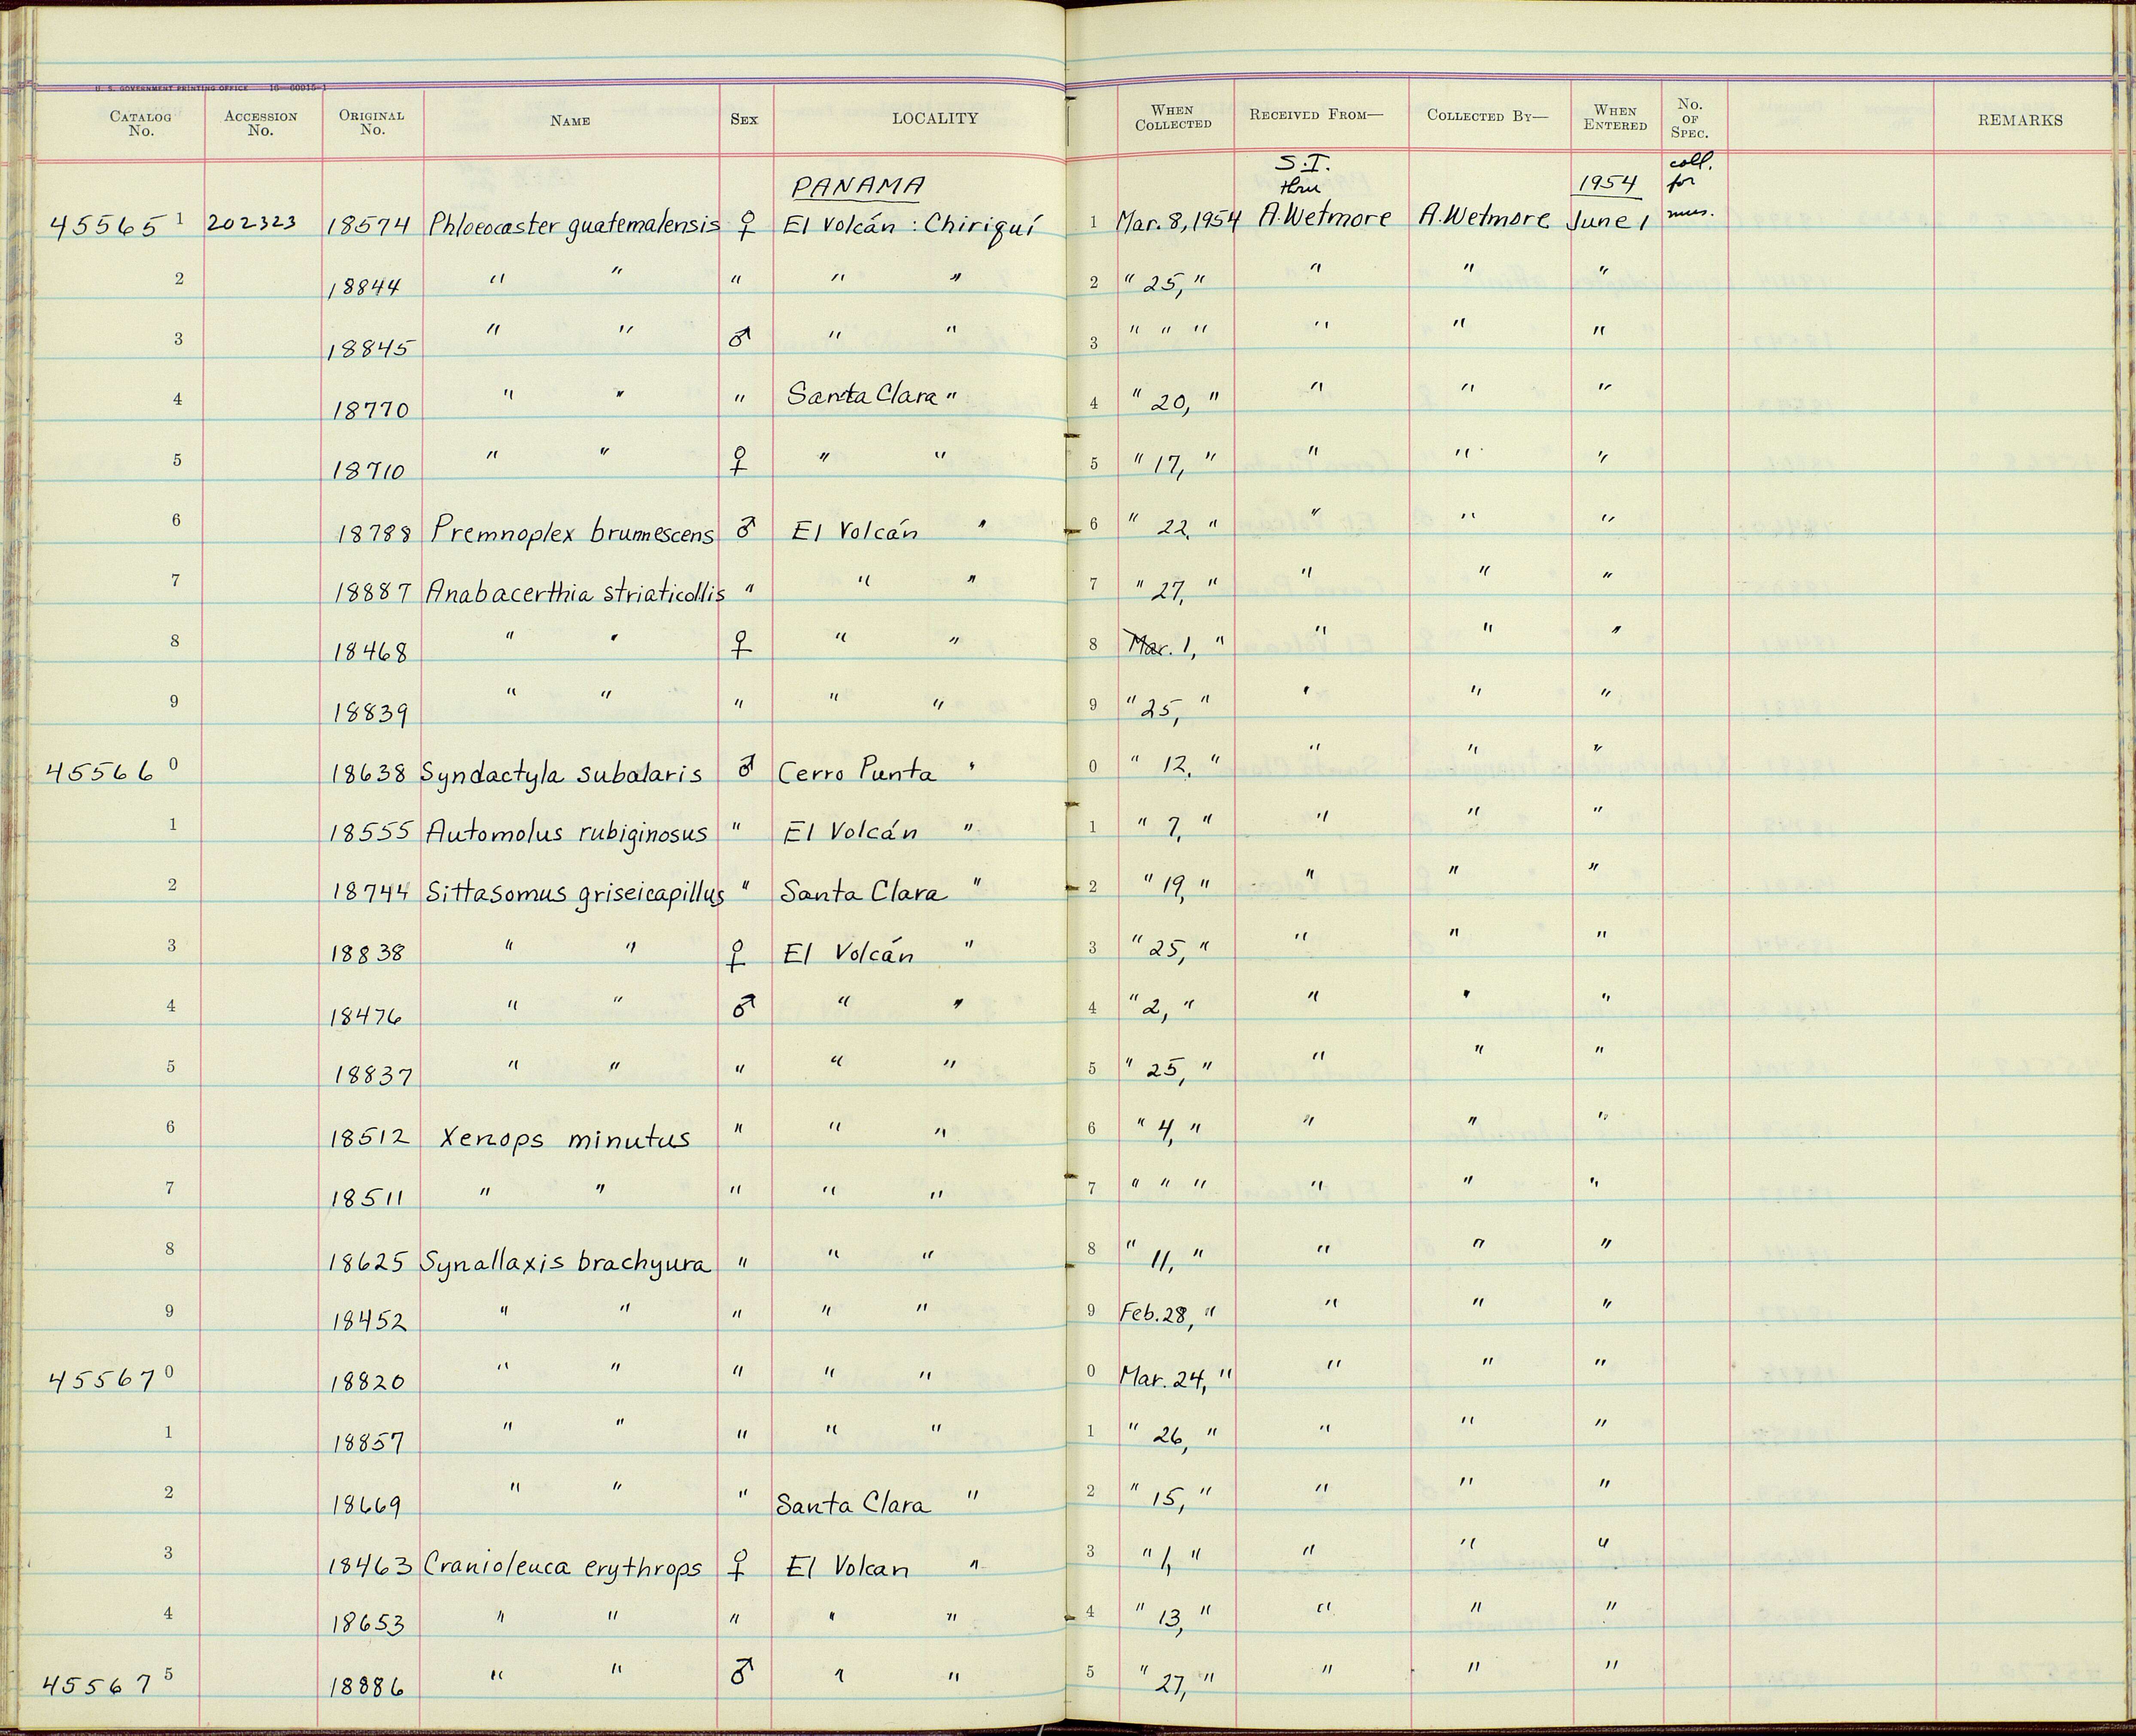 U. S. GOVERNMENT PRINTING OFFICE 16—60015-1
CATALOG No. ACCESSION No. ORIGINAL No. NAME SEX LOCALITY WHEN COLLECTED RECEIVED FROM— COLLECTED BY— WHEN ENTERED No. OF SPEC. REMARKS
PANAMA S.I. thru 1954 coll. for mus.
455651 202323 18574 Phloeocaster guatemalensis ♀ El Volcán : Chiriquí 1 Mar. 8, 1954 A. Wetmore A. Wetmore June 1
2 18844 " " " " " 2 " 25, " " " "
3 18845 " " ♂ " " 3 " " " " " "
4 18770 " " " Santa Clara " 4 " 20, " " " "
5 18710 " " ♀ " " 5 " 17, " " " "
6 18788 Premnoplex brunnescens ♂ El Volcán " 6 " 22, " " " "
7 18887 Anabacerthia striaticollis " " " 7 " 27, " " " "
8 18468 " " ♀ " " 8 Mar. 1, " " " "
9 18839 " " " " " 9 " 25, " " " "
455660 18638 Syndactyla subalaris ♂ Cerro Punta " 0 " 12, " " " "
1 18555 Automolus rubiginosus " El Volcán " 1 " 7, " " " "
2 18744 Sittasomus griseicapillus " Santa Clara " 2 " 19, " " " "
3 18838 " " ♀ El Volcán " 3 " 25, " " " "
4 18476 " " ♂ " " 4 " 2, " " " "
5 18837 " " " " " 5 " 25, " " " "
6 18512 Xenops minutus " " " 6 " 4, " " " "
7 18511 " " " " " 7 " " " " " "
8 18625 Synallaxis brachyura " " " 8 " 11, " " " "
9 18452 " " " " " 9 Feb. 28, " " " "
455670 18820 " " " " " 0 Mar. 24, " " " "
1 18857 " " " " " 1 " 26, " " " "
2 18669 " " " Santa Clara " 2 " 15, " " " "
3 18463 Cranioleuca erythrops ♀ El Volcan " 3 " 1, " " " "
4 18653 " " " " " 4 " 13, " " " "
455675 18886 " " ♂ " " 5 " 27, " " " "